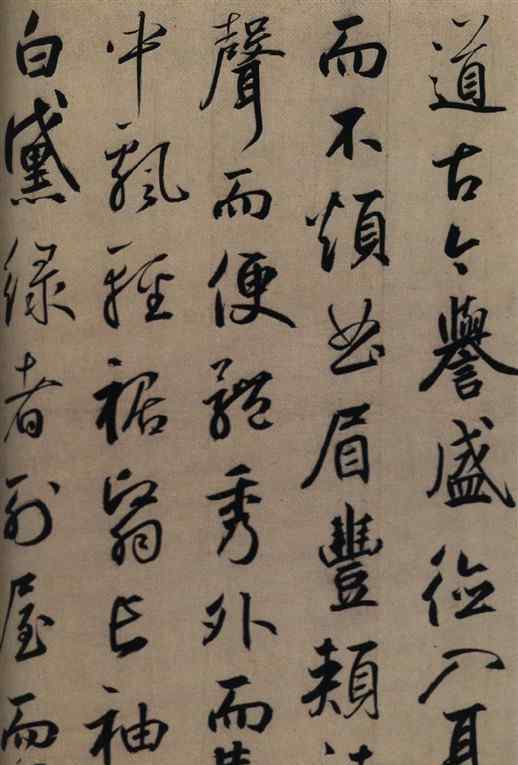 道古今譽盛德入耳
而不煩曲眉豐頰
聲而便體秀外而
中飄輕裾翳長袖
白黛綠者列屋而